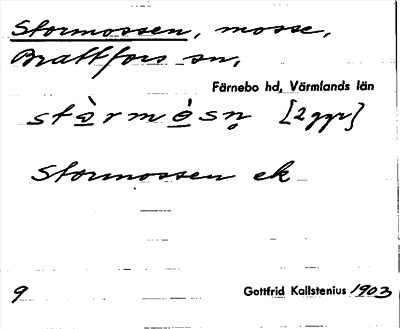 Stormossen, mosse,
Brattfors sn,
Färnebo hd, Värmlands län
stɔ̀rmɔ́sn̥ [2 ggr]
Stormossen ek
9
Gottfrid Kallstenius 1903